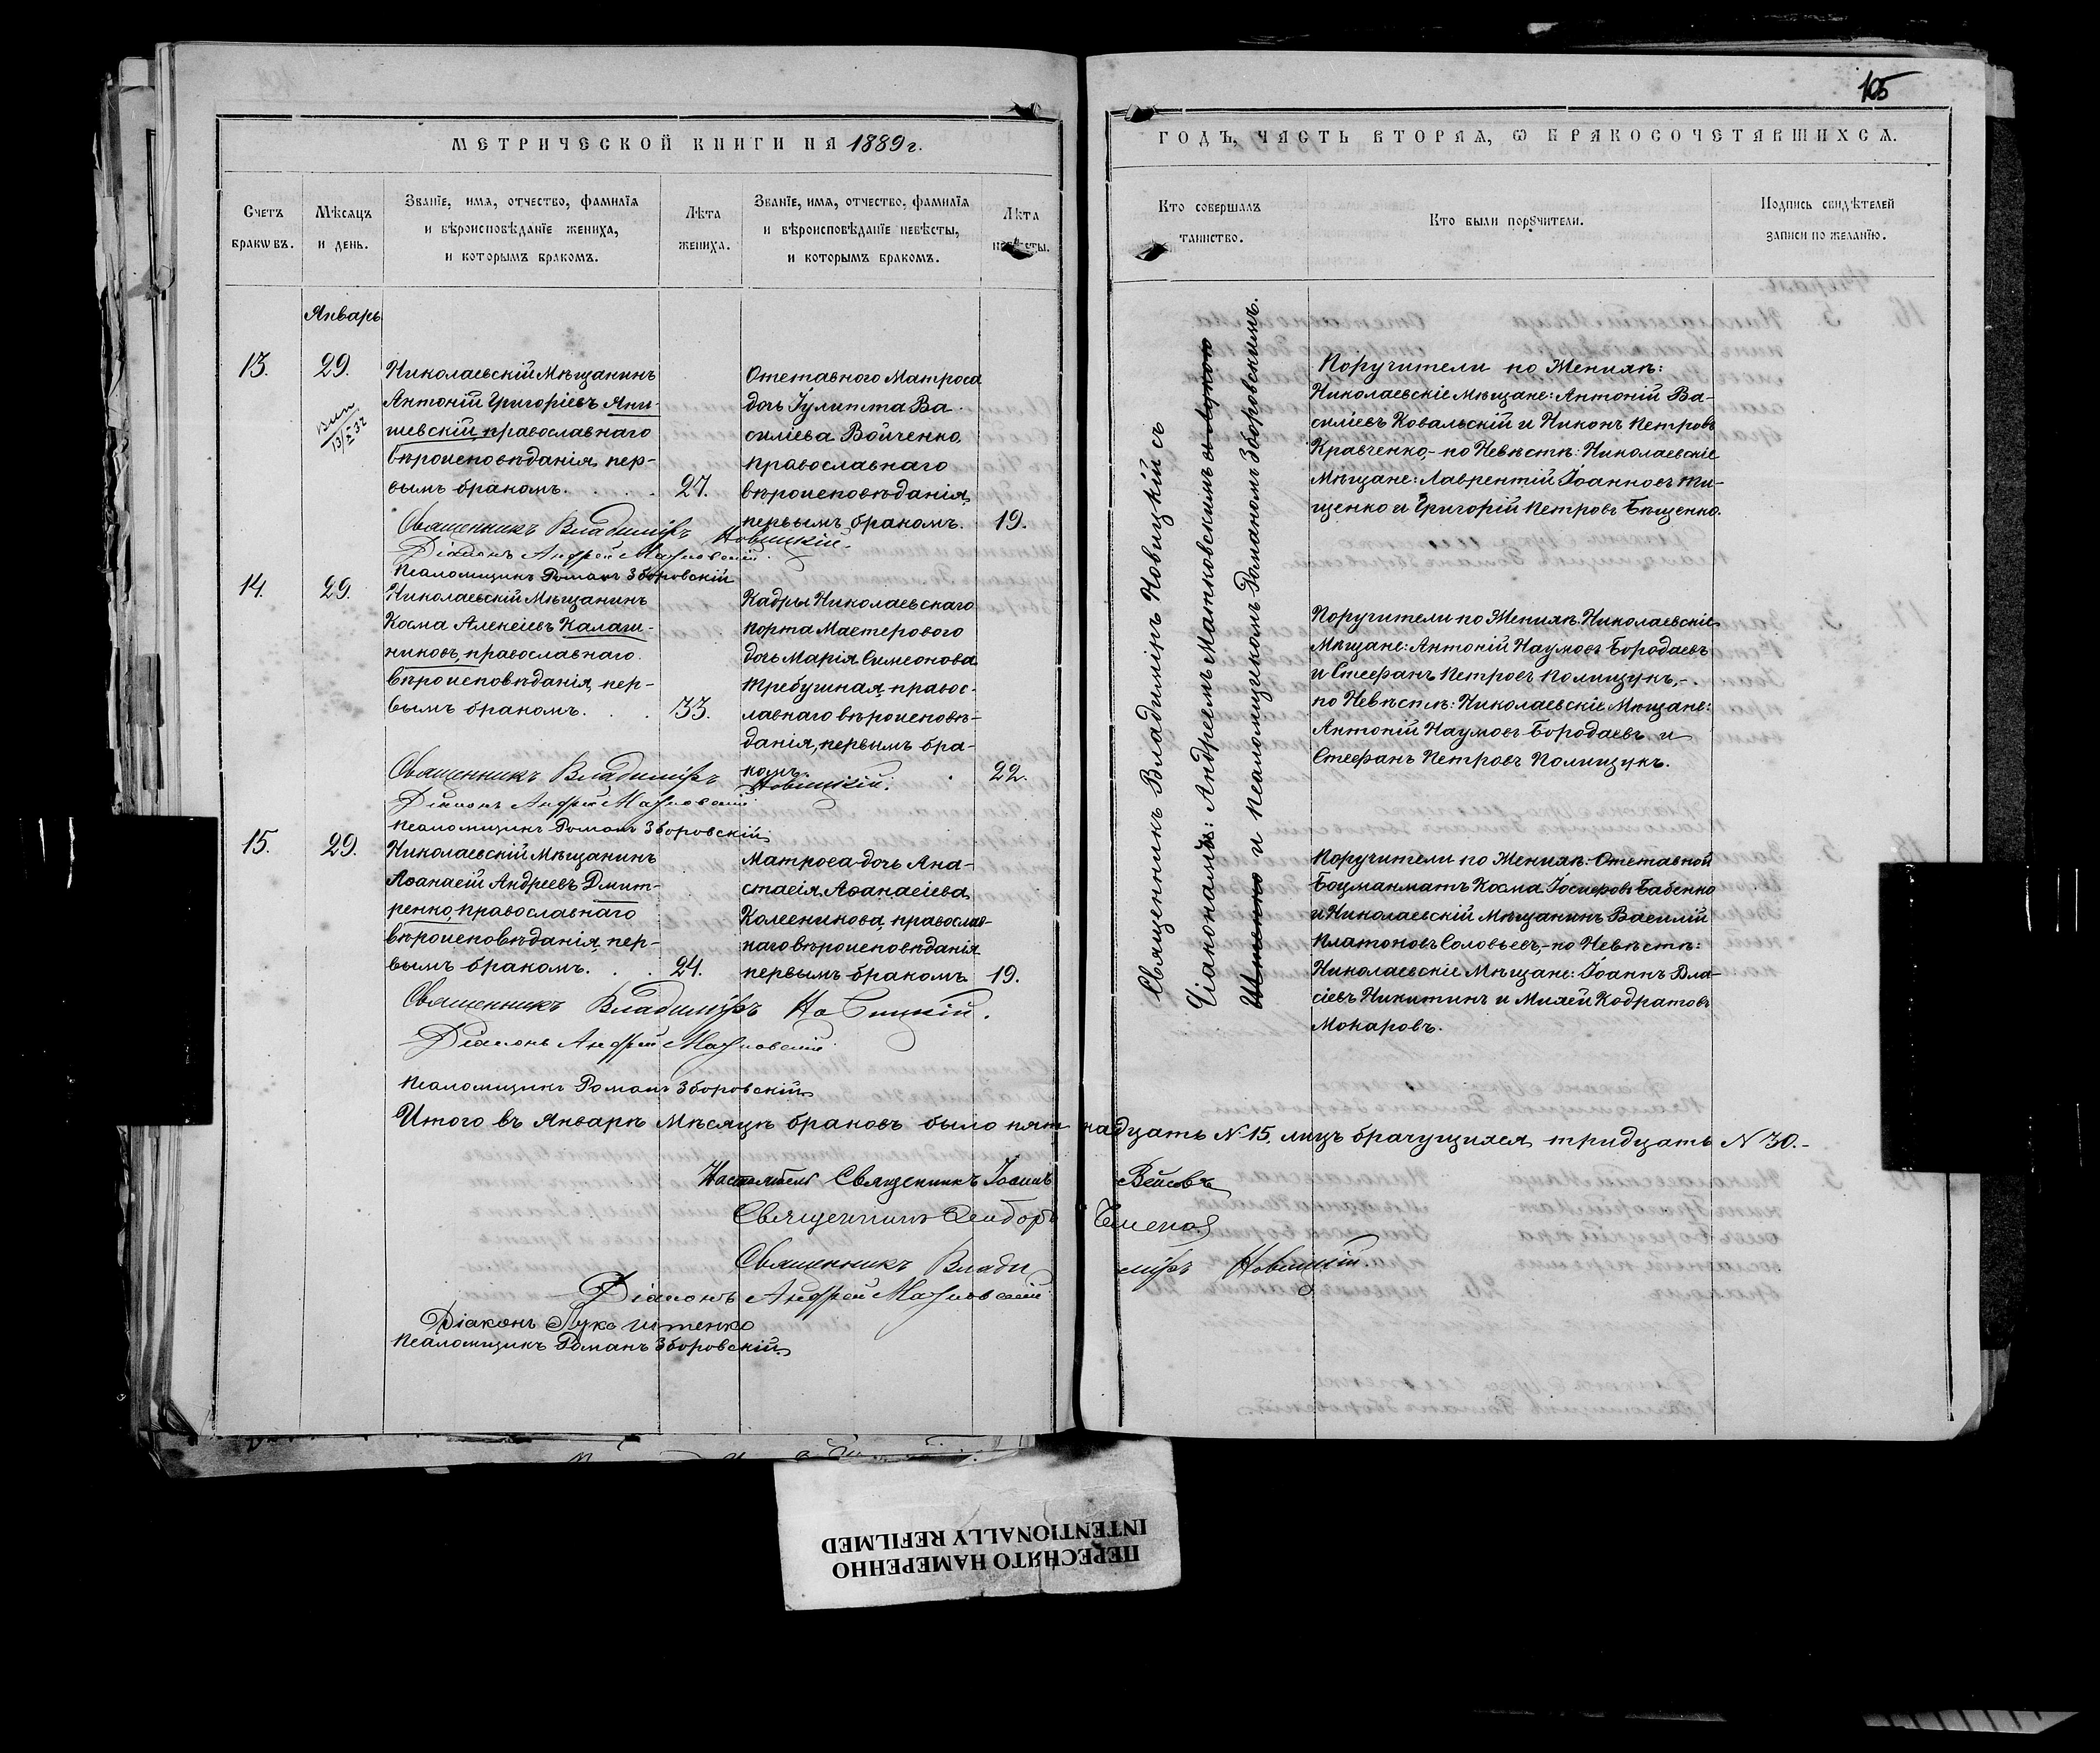 МЕТРИЧЕСКОЙ КНИГИ НА 1889 г.
Счетъ браковъ.
Мѣсяцъ и день.
Званіе, имя, отчество, фамилія
и вѣроисповѣданіе жениха,
и которымъ бракомъ.
Лѣта жениха.
Званіе, имя, отчество, фамилія
и вѣроисповѣданіе невѣсты,
и которымъ бракомъ.
Лѣта невѣсты.
Январь
13.
29.
Николаевскій Мѣщанинъ
Антоній Григоріевъ Яни-
шевскій, православнаго
вѣроисповѣданія, пер-
вымъ бракомъ. . . .
27.
Отставного Матроса
дочь Іулитта Ва-
силіева Войченко,
православнаго
вѣроисповѣданія,
первымъ бракомъ.
19.
Священникъ Владиміръ Новицкій.
Діаконъ Андрей
Псаломщикъ Романъ Зборовскій
14.
29.
Николаевскій Мѣщанинъ
Косма Алексіевъ Калаш-
никовъ, православнаго
вѣроисповѣданія, пер-
вымъ бракомъ. . .
33.
Кадры Николаевскаго
порта Мастерового
дочь Марія Симеонова
Требушная, правос-
лавнаго вѣроисповѣ-
данія, первымъ бра-
комъ.
22.
Священникъ Владиміръ Новицкій.
Діаконъ Андрей
Псаломщикъ Романъ Зборовскій
15.
29.
Николаевскій Мѣщанинъ
Аѳанасій Андреевъ Дмит-
ренко, православнаго
вѣроисповѣданія, пер-
вымъ бракомъ. . .
24.
Матроса дочь Ана-
стасія Аѳанасіева
Колесникова, православ-
наго вѣроисповѣданія
первымъ бракомъ.
19.
Священникъ Владиміръ Новицкій.
Діаконъ Андрей
Псаломщикъ Романъ Зборовскій
Итого въ Январѣ Мѣсяцѣ браковъ было пят
Настоятель Священникъ Іосифъ
Священникъ Ѳеодоръ
Священникъ Влади
Діаконъ Андрей
Діаконъ Лука Шпенко
Псаломщикъ Романъ Зборовскій
105
ГОДЪ, ЧАСТЬ ВТОРАЯ, Ѡ БРАКОСОЧЕТАВШИХСЯ.
Кто совершалъ таинство.
Кто были поручители.
Подпись свидѣтелей
записи по желанію.
Священникъ Владиміръ Новицкій съ
Діаконамъ: Андреемъ Матковскимъ съ Лукою
Шпенко и псаломщикомъ Романомъ Зборовскимъ.
Поручители по Женихѣ:
Николаевскіе Мѣщане: Антоній Ва-
силіевъ Ковальскій и Никонъ Петровъ
Кравченко,- по Невѣстѣ: Николаевскіе
Мѣщане: Лаврентій Іоанновъ Ти-
щенко и Григорій Петровъ Бѣщенко.
Поручители по Женихѣ: Николаевскіе
Мѣщане: Антоній Наумовъ Бородаевъ
и Стефанъ Петровъ Полищукъ,-
по Невѣстѣ: Николаевскіе Мѣщане:
Антоній Наумовъ Бородаевъ и
Стефанъ Петровъ Полищукъ.
Поручители по Женихѣ: Отставной
Боцманматъ Косма Іосифовъ Бабенко
и Николаевскій Мѣщанинъ Василій
Платоновъ Соловьевъ,- по Невѣстѣ:
Николаевскіе Мѣщане: Іоаннъ Вла-
сіевъ Никитинъ и Михей Кодратовъ
Мокаровъ.
надцать №15, лицъ брачущихся тридцать №30.-
міръ Новицкій.
ПЕРЕСНЯТО НАМЕРЕННО
INTENTIONALLY REFILMED